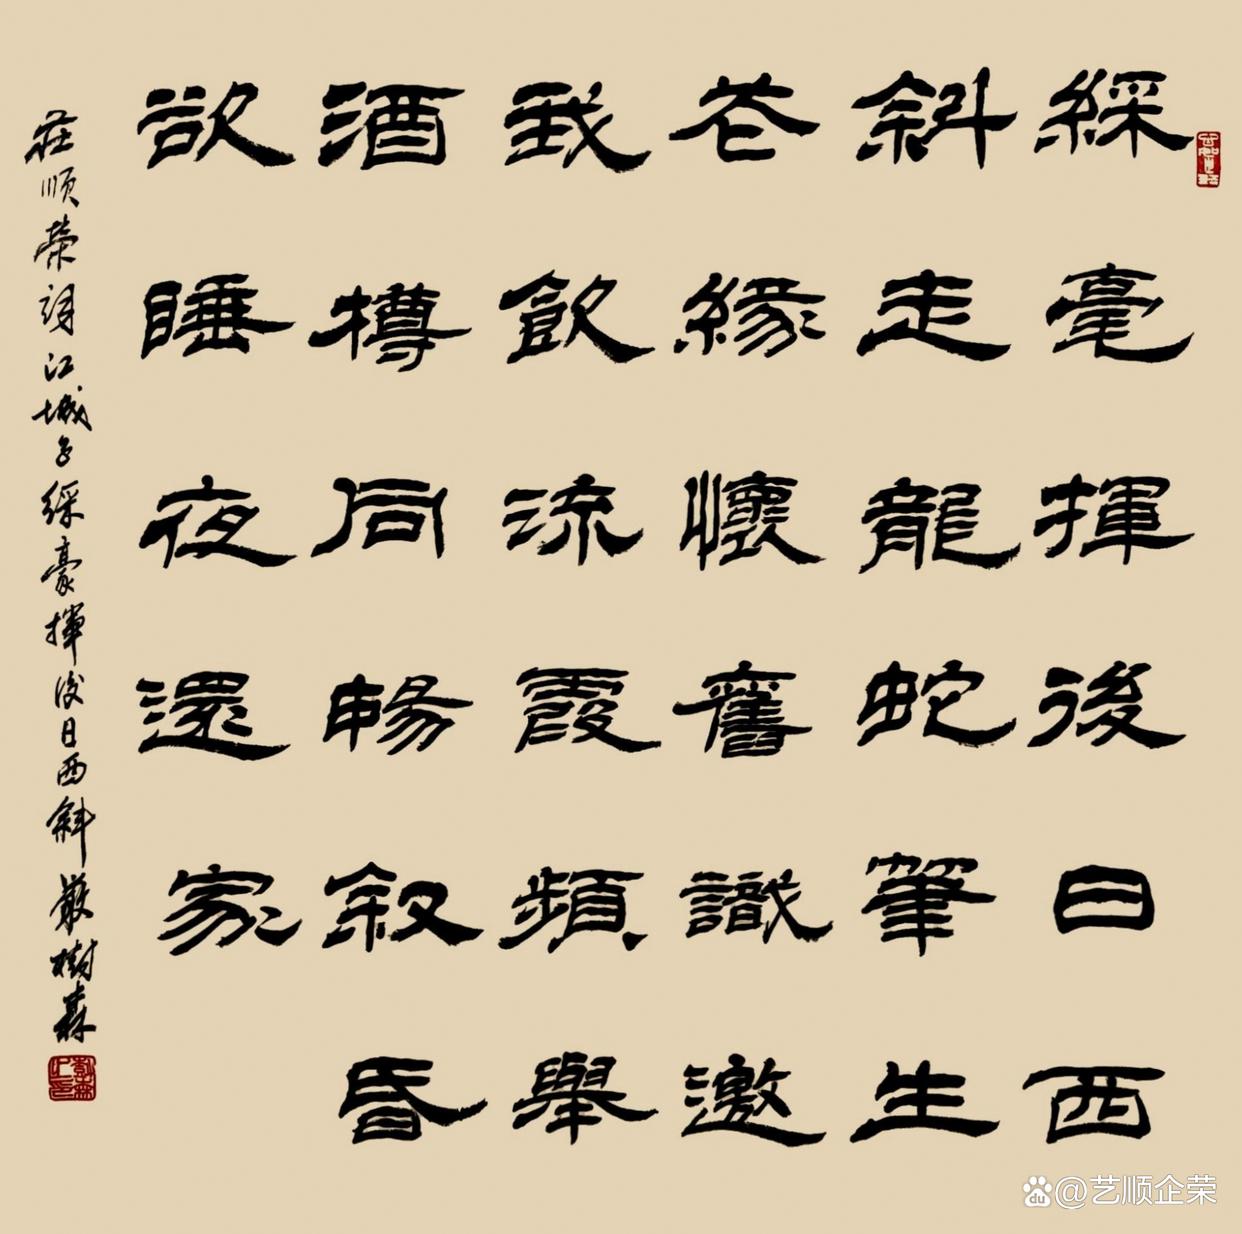 綵毫揮後日西
斜走龍蛇筆生
花緣懷舊識邀
我飲流霞頻舉
酒樽同暢叙昏
欲睡夜還家
莊順榮詞江城子綵豪揮後日西斜嚴樹森
du @艺顺企荣